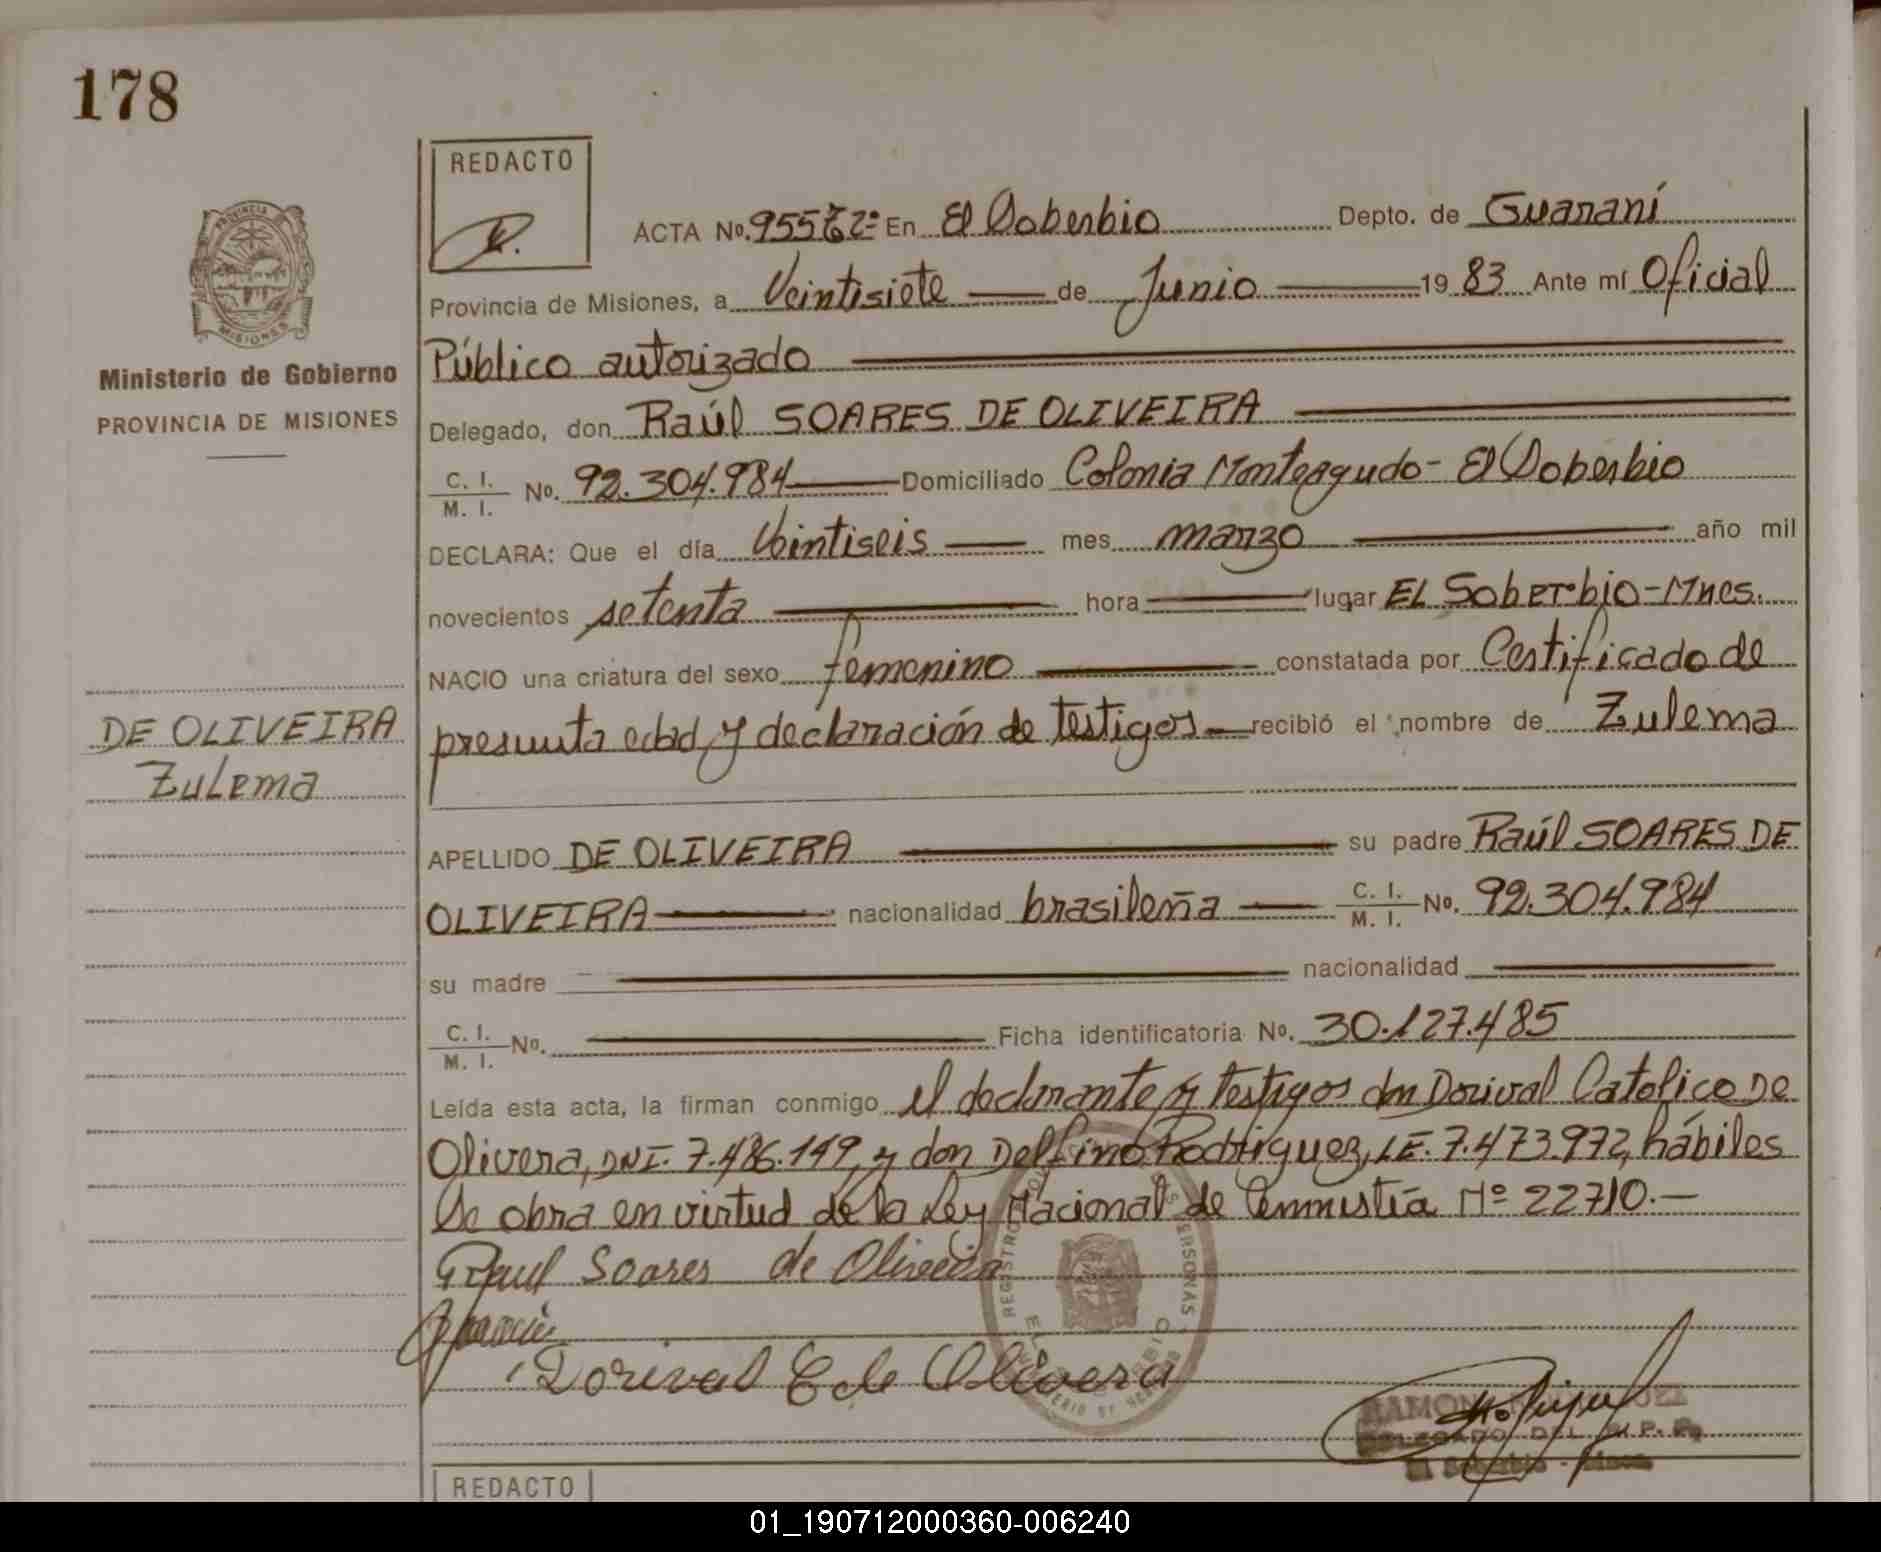 178
REDACTO
ACTA No. 955 En El Soberbio Depto. de Guaraní
Provincia de Misiones, a Veintisiete de Junio 1983 Ante mí Oficial
Público autorizado
Delegado, don Raúl SOARES DE OLIVEIRA
C. I. M. I. No. 92.304.984 Domiciliado Colonia Monteagudo - El Soberbio
DECLARA: Que el día Veintiseis mes marzo año mil
novecientos setenta hora lugar EL Soberbio-Mnes.
NACIO una criatura del sexo femenino constatada por Certificado de
presunta edad y declaración de testigos recibió el nombre de Zulema
APELLIDO DE OLIVEIRA su padre Raúl SOARES DE
OLIVEIRA nacionalidad brasileña C. I. M. I. No. 92.304.984
su madre nacionalidad
C. I. M. I. No. Ficha identificatoria No. 30.127.485
Leída esta acta, la firman conmigo el declarante y testigos don Dorival Catolico De
Olivera, DNI. 7.486.149, y don Delfino Rodriguez, LE. 7.473.972, hábiles
Se obra en virtud de la Ley Nacional de Amnistía Nº 22710.-
Raul Soares de Oliveira
Dorival C de Olivera
RAMON
DELEGADO DEL R. P. P.
El Soberbio - Mnes
Ministerio de Gobierno
PROVINCIA DE MISIONES
DE OLIVEIRA
Zulema
PROVINCIA
MISIONES
REDACTO
01_190712000360-006240